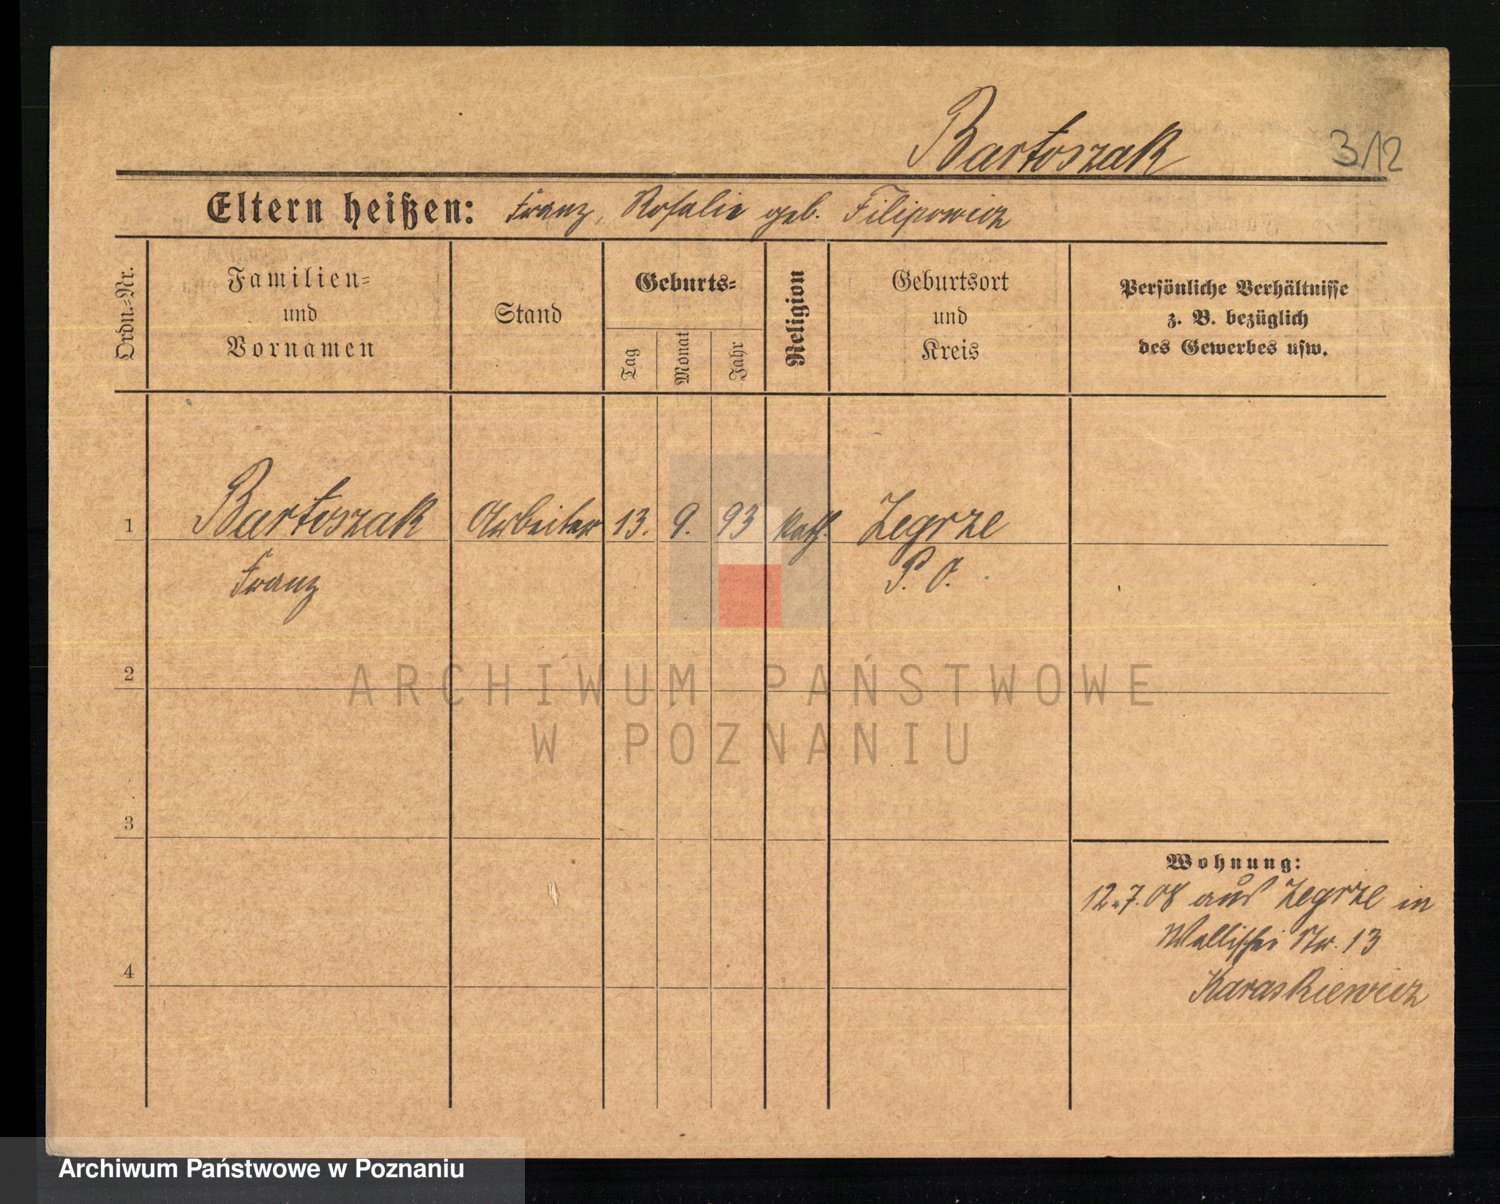 Bartoszak 3/12
Eltern heißen: Franz, Rosalie geb. Filipowicz
Ordn.-Nr.
Familien-
und
Vornamen
Stand
Geburts-
Tag
Monat
Jahr
Religion
Geburtsort
und
Kreis
Persönliche Verhältnisse
z. B. bezüglich
des Gewerbes usw.
1 Bartoszak Arbeiter 13. 9. 93 kath. Zegrze
Franz P. O.
2
ARCHIWUM PAŃSTWOWE
W POZNANIU
3
Wohnung:
12.7.08 aus Zegrze in
Wallischei Nr. 13
4
Karaskiewicz
Archiwum Państwowe w Poznaniu